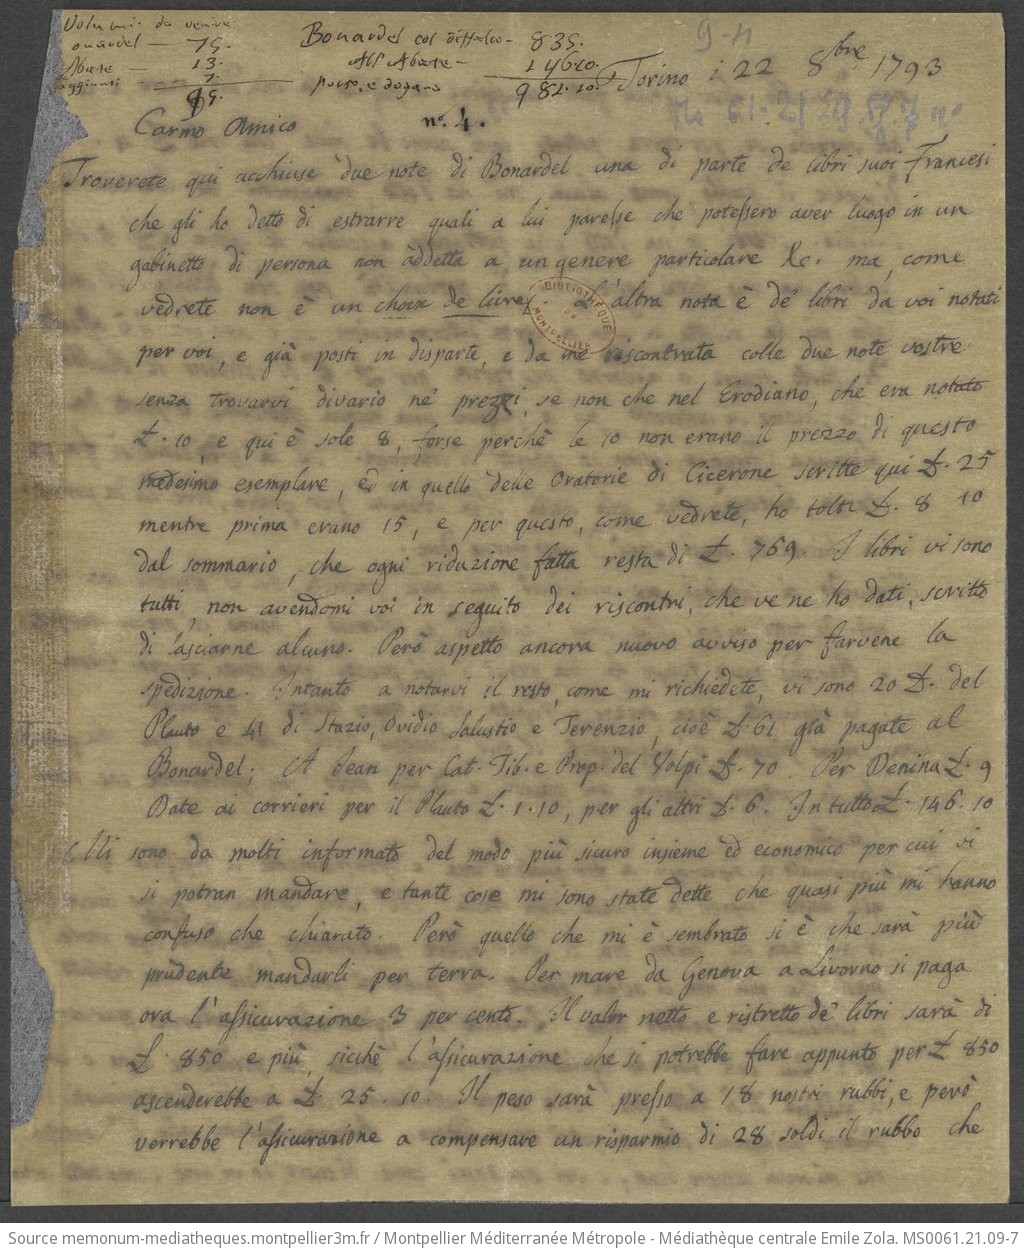 Volumi da venire
onardel — 75.
Abate — 13.
7.
95.
Bonardel col diffalco - 835.
All'Abate - 146.10.
porto, e dogana
981.10.
9-11
Torino i 22 8bre 1793
Ms 61.21.9.
Carmo Amico
n.° 4.
Troverete qui acchiuse due note di Bonardel una di parte de libri suoi Francesi
che gli ho detto di estrarre quali a lui paresse che potessero aver luogo in un
gabinetto di persona non addetta a un genere particolare &c. ma, come
vedrete non è un choix de livres. L'altra nota è de' libri da voi notati
per voi, e già posti in disparte, e da me riscontrata colle due note vostre
senza trovarvi divario ne' prezzi, se non che nel Erodiano, che era notato
£. 10, e qui è sole 8, forse perchè le 10 non erano il prezzo di questo
medesimo esemplare, ed in quello delle Oratorie di Cicerone scritte qui £. 25
mentre prima erano 15, e per questo, come vedrete, ho tolti £. 8 10
dal sommario, che ogni riduzione fatta resta di £. 769. I libri vi sono
tutti, non avendomi voi in seguito dei riscontri, che ve ne ho dati, scritto
di lasciarne alcuno. Però aspetto ancora nuovo avviso per farvene la
spedizione. Intanto a notarvi il resto, come mi richiedete, vi sono 20 £. del
Plauto e 41 di Stazio, Ovidio Salustio e Terenzio, cioè £. 61 già pagate al
Bonardel; A Jean per Cat. Tib. e Prop. del Volpi £. 70. Per Denina £. 9
Date ai corrieri per il Plauto £. 1.10, per gli altri £. 6. In tutto £. 146.10
Mi sono da molti informato del modo più sicuro insieme ed economico per cui vi
si potran mandare, e tante cose mi sono state dette che quasi più mi hanno
confuso che chiarato. Però quello che mi è sembrato si è che sarà più
prudente mandarli per terra. Per mare da Genova a Livorno si paga
ora l'assicurazione 3 per cento. Il valor netto e ristretto de' libri sarà di
£. 850 e più, sicchè l'assicurazione che si potrebbe fare appunto per £ 850
ascenderebbe a £. 25.10. Il peso sarà presso a 18 nostri rubbi, e però
verrebbe l'assicurazione a compensare un risparmio di 28 soldi il rubbo che
BIBLIOTHÈQUE DE MONTPELLIER
Source memonum-mediatheques.montpellier3m.fr / Montpellier Méditerranée Métropole - Médiathèque centrale Emile Zola. MS0061.21.09-7